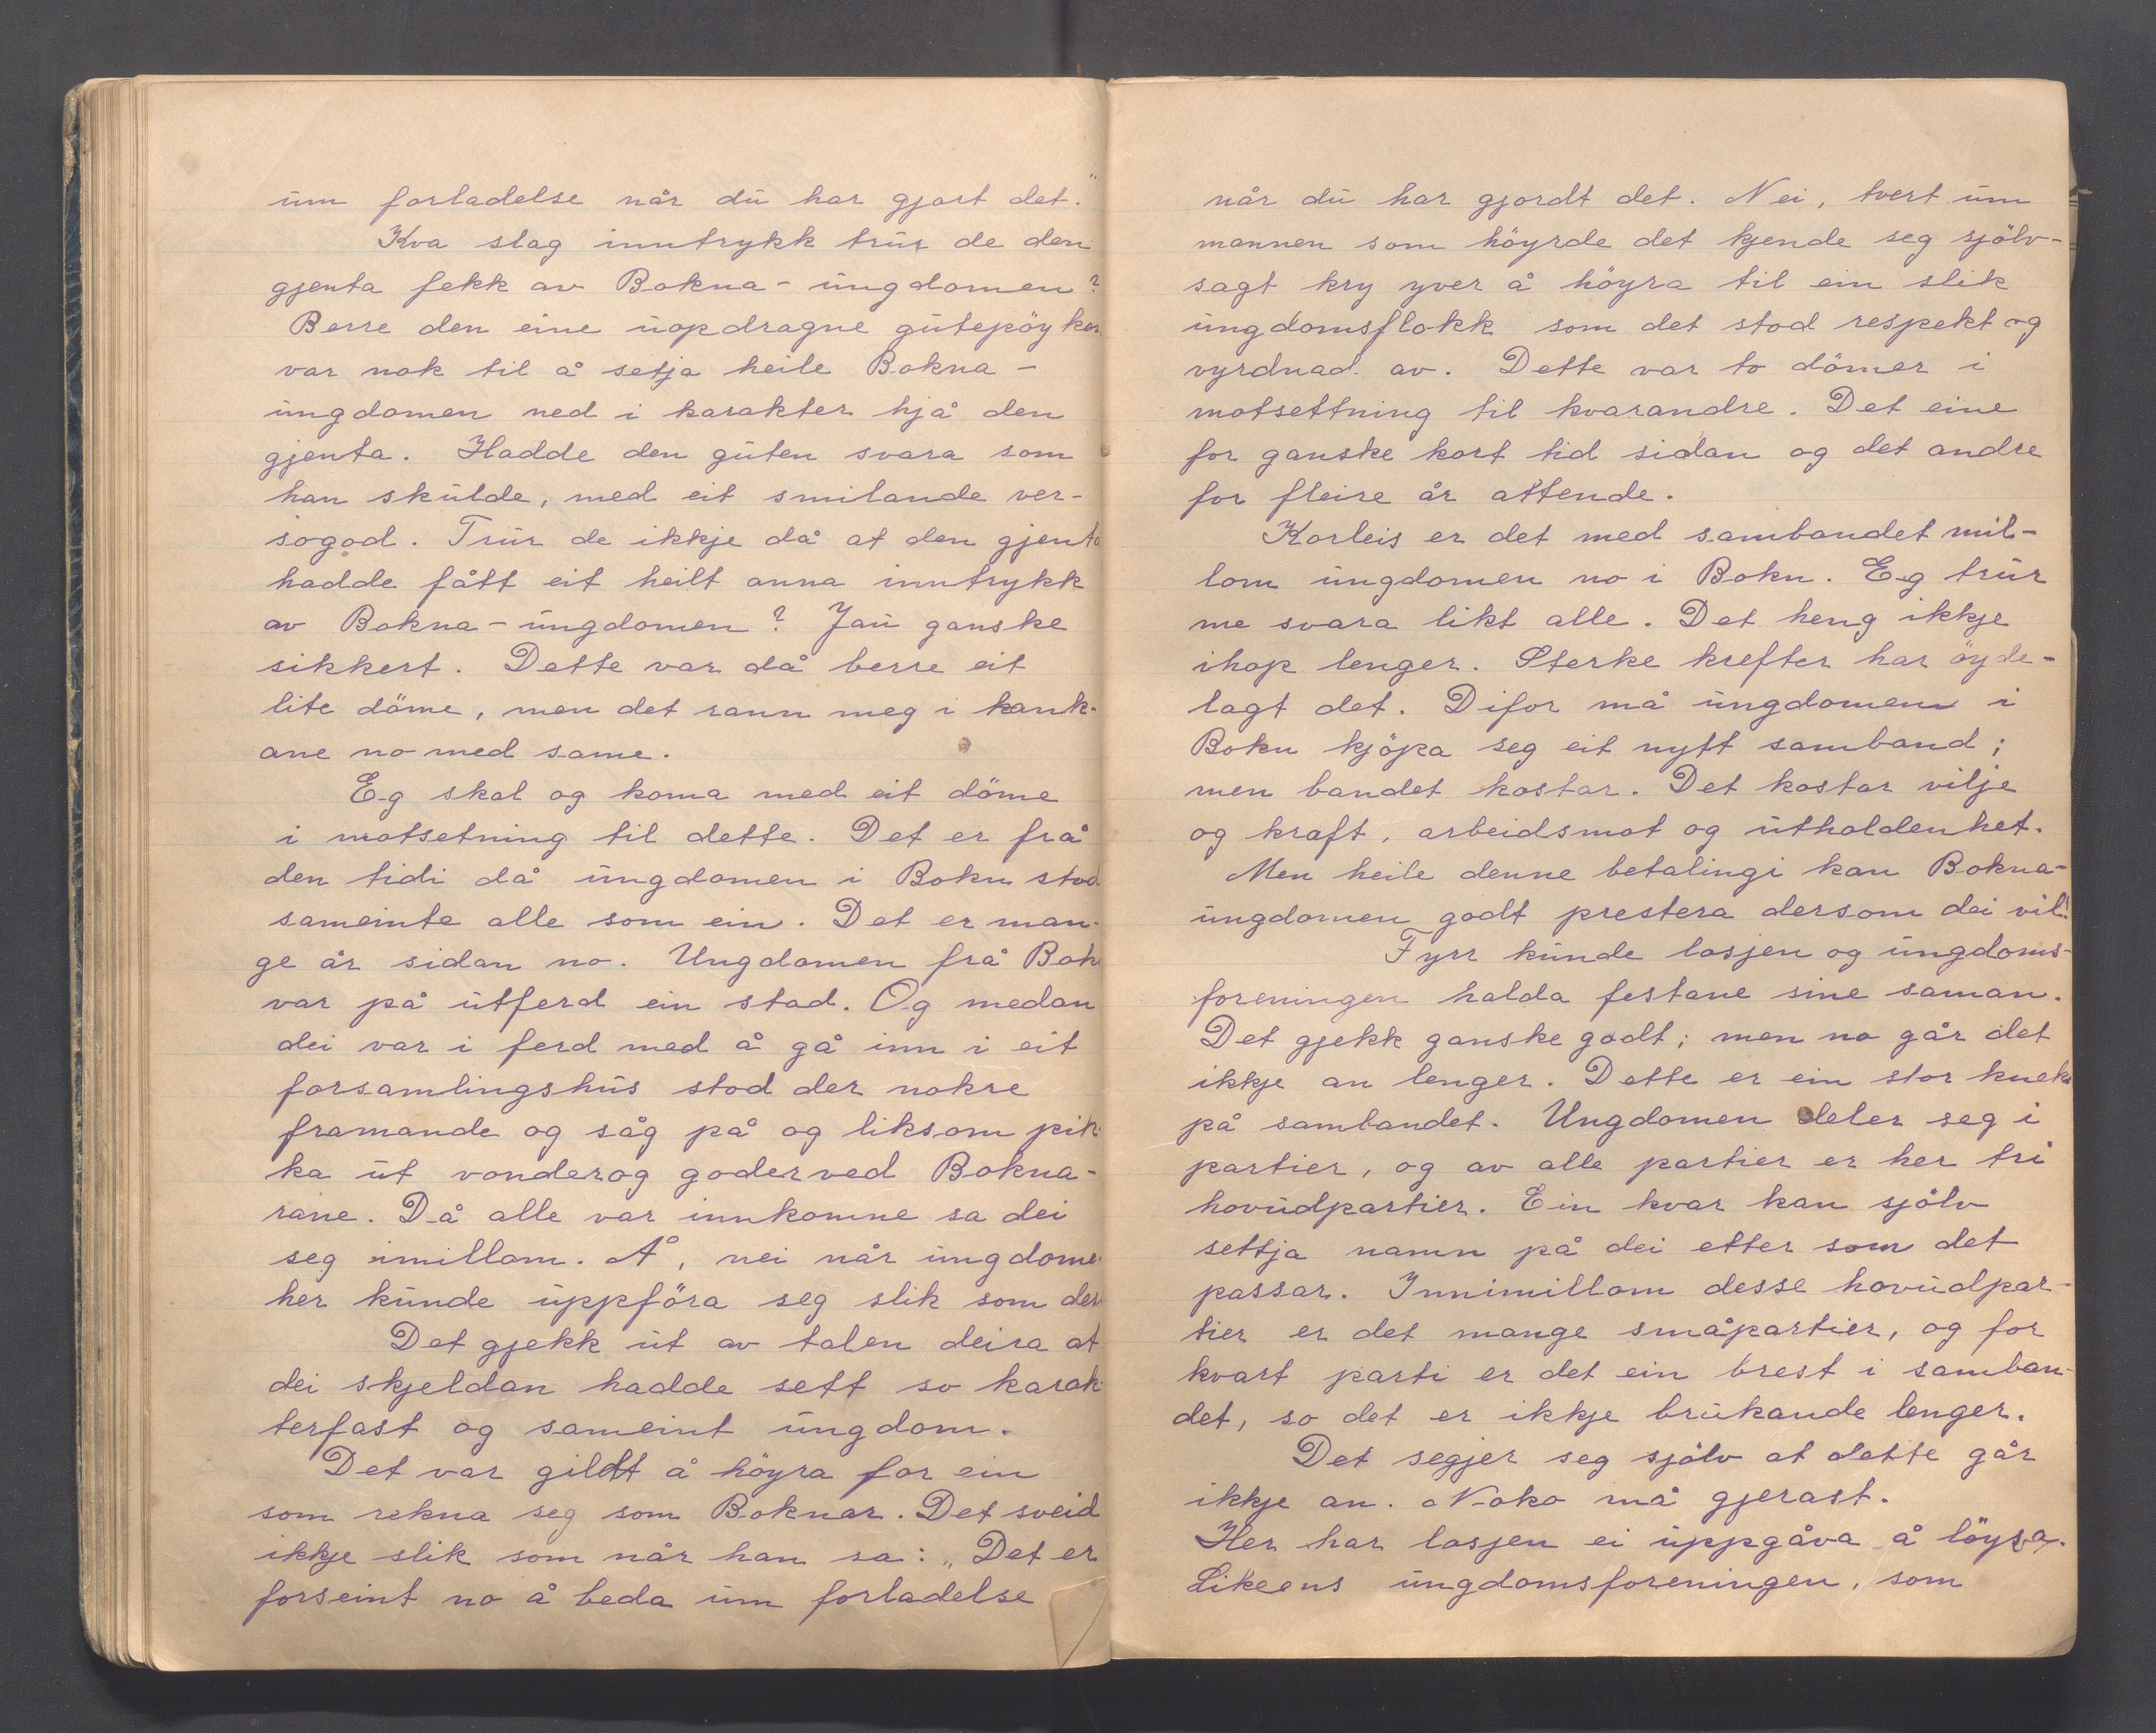 um forladelse når du har gjort det."
Kva slag inntrykk trur de den
gjenta fekk av Bokna-ungdomen?
Berre den eine uopdragne gutepöyken
var nok til å setja heile Bokna-
ungdomen ned i karakter hjå den
gjenta. Hadde den guten svara som
han skulde, med eit smilande ver-
sogod. Trur de ikkje då at den gjenta
hadde fått eit heilt anna inntrykk
av Bokna-ungdomen? Jau ganske
sikkert. Dette var då berre eit
lite döme, men det rann meg i hank-
ane no med same.
Eg skal og koma med eit döme
i motsetning til dette. Det er frå
den tidi då ungdomen i Bokn stod
sameinte alle som ein. Det er man-
ge år sidan no. Ungdomen frå Bok
var på utferd ein stad. Og medan
dei var i ferd med å gå inn i eit
forsamlingshus stod der nokre
framande og såg på og liksom pik-
ka ut vonder og goder ved Bokna-
rane. Då alle var innkomne sa dei
seg imillom. Å, nei når ungdome
her kunde uppföra seg slik som der
Det gjekk ut av talen deira at
dei skjeldan hadde sett so karak-
terfast og sameint ungdom.
Det var gildt å höyra for ein
som rekna seg som Boknar. Det sveid
ikkje slik som når han sa: „Det er
forseint no å beda um forladelse
når du har gjordt det. Nei, tvert um
mannen som höyrde det kjende seg sjölv-
sagt kry yver å höyra til ein slik
ungdomsflokk som det stod respekt og
vyrdnad av. Dette var to dömer i
motsettning til kvarandre. Det eine
for ganske kort tid sidan og det andre
for fleire år attende.
Korleis er det med sambandet mil-
lom ungdomen no i Bokn. Eg trur
me svara likt alle. Det heng ikkje
ihop lenger. Sterke krefter har öyde-
lagt det. Difor må ungdomen i
Bokn kjöpa seg eit nytt samband;
men bandet kostar. Det kostar vilje
og kraft, arbeidsmot og utholdenhet.
Men heile denne betalingi kan Bokna-
ungdomen godt prestera dersom dei vil!
Fyrr kunde losjen og ungdoms-
foreningen halda festane sine saman.
Det gjekk ganske godt; men no går det
ikkje an lenger. Dette er ein stor knekk
på sambandet. Ungdomen deler seg i
partier, og av alle partier er her tri
hovudpartier. Ein kvar kan sjölv
settja namn på dei etter som det
passar. Innimillom desse hovudpar-
tier er det mange småpartier, og for
kvart parti er det ein brest i samban-
det, so det er ikkje brukande lenger.
Det segjer seg sjölv at dette går
ikkje an. Noko må gjerast.
Her har losjen ei uppgåva å löysa.
Likeens ungdomsforeningen, som